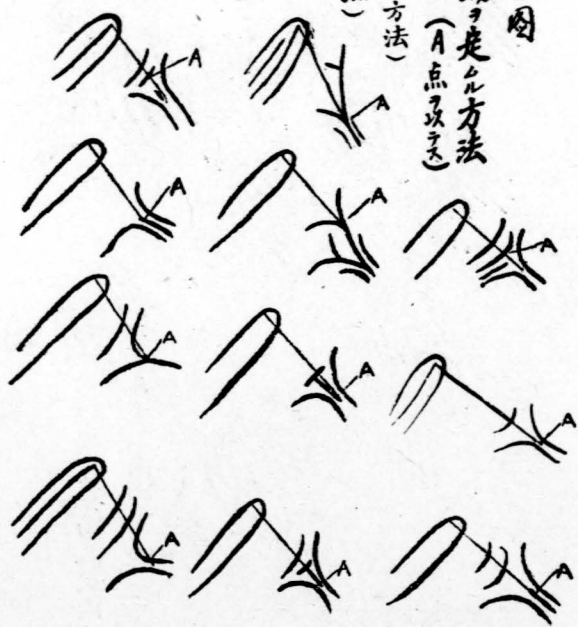 圖
ヲ定ムル方法
(A点ヲ以テス)
方法)
A
A
A
A
A
A
A
A
A
A
A